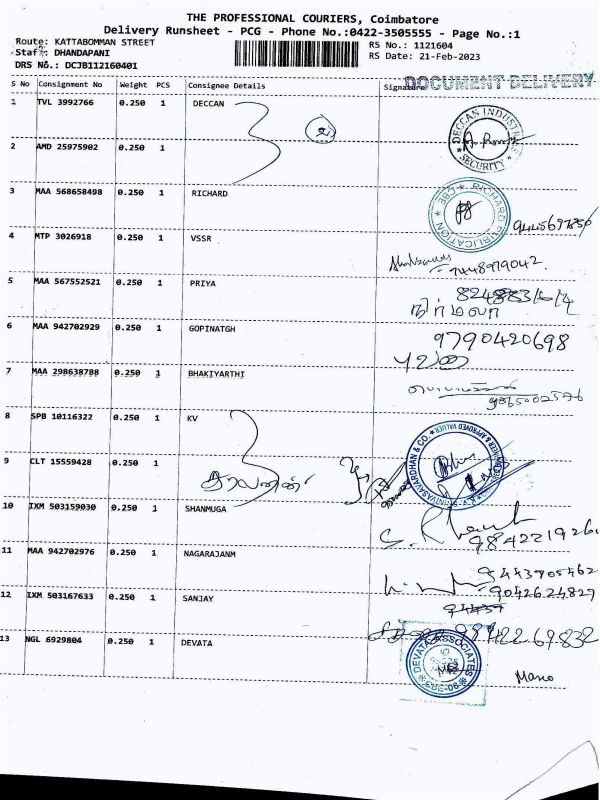 THE PROFESSIONAL COURIERS, Coimbatore
Delivery Runsheet - PCG - Phone No.:0422-3505555 - Page No.:1
Route: KATTABOMMAN STREET
Staff: DHANDAPANI
DRS No.: DCJB112160401
RS No.: 1121604
RS Date: 21-Feb-2023
DOCUMENT DELIVERY
S No Consignment No Weight PCS Consignee Details Signature
1 TVL 3992766 0.250 1 DECCAN
DECCAN INDUSTRIES SECURITY
2 AMD 25975902 0.250 1
3 MAA 568658498 0.250 1 RICHARD
RICHARD PUBLICATION CBE
4 MTP 3026918 0.250 1 VSSR
7448979042
5 MAA 567552521 0.250 1 PRIYA
நிர்மலா
6 MAA 942702929 0.250 1 GOPINATGH
9790420698
7 MAA 298638788 0.250 1 BHAKIYARTHI
9865002576
8 SPB 10116322 0.250 1 KV
9 CLT 15559428 0.250 1
சரவணன்
10 IXM 503159030 0.250 1 SHANMUGA
9842219261
11 MAA 942702976 0.250 1 NAGARAJANM
9443905462
9042624829
12 IXM 503167633 0.250 1 SANJAY
13 NGL 6929804 0.250 1 DEVATA
DEVATA ASSOCIATES
Mano